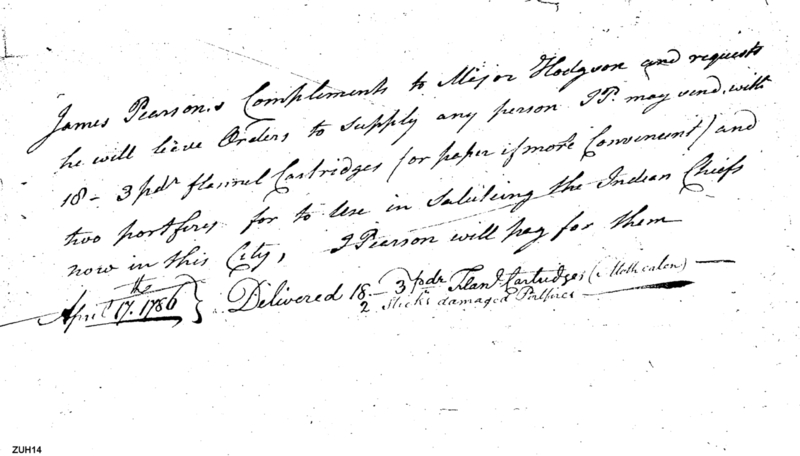 James Pearson's Complements to Major Hodgson and requests
he will leave Orders to supply any person JP. may send, with
18 - 3 pdr flannel Cartridges (or paper if more Convenient) and
two portfires for to Use in Saluteing the Indian Chiefs
now in this City, J Pearson will pay for them
April 17.th 1786 } Delivered 18 - 3 pdr Flanl. Cartridges (Moth eaten)
2 Sticks damaged Portfires
ZUH14